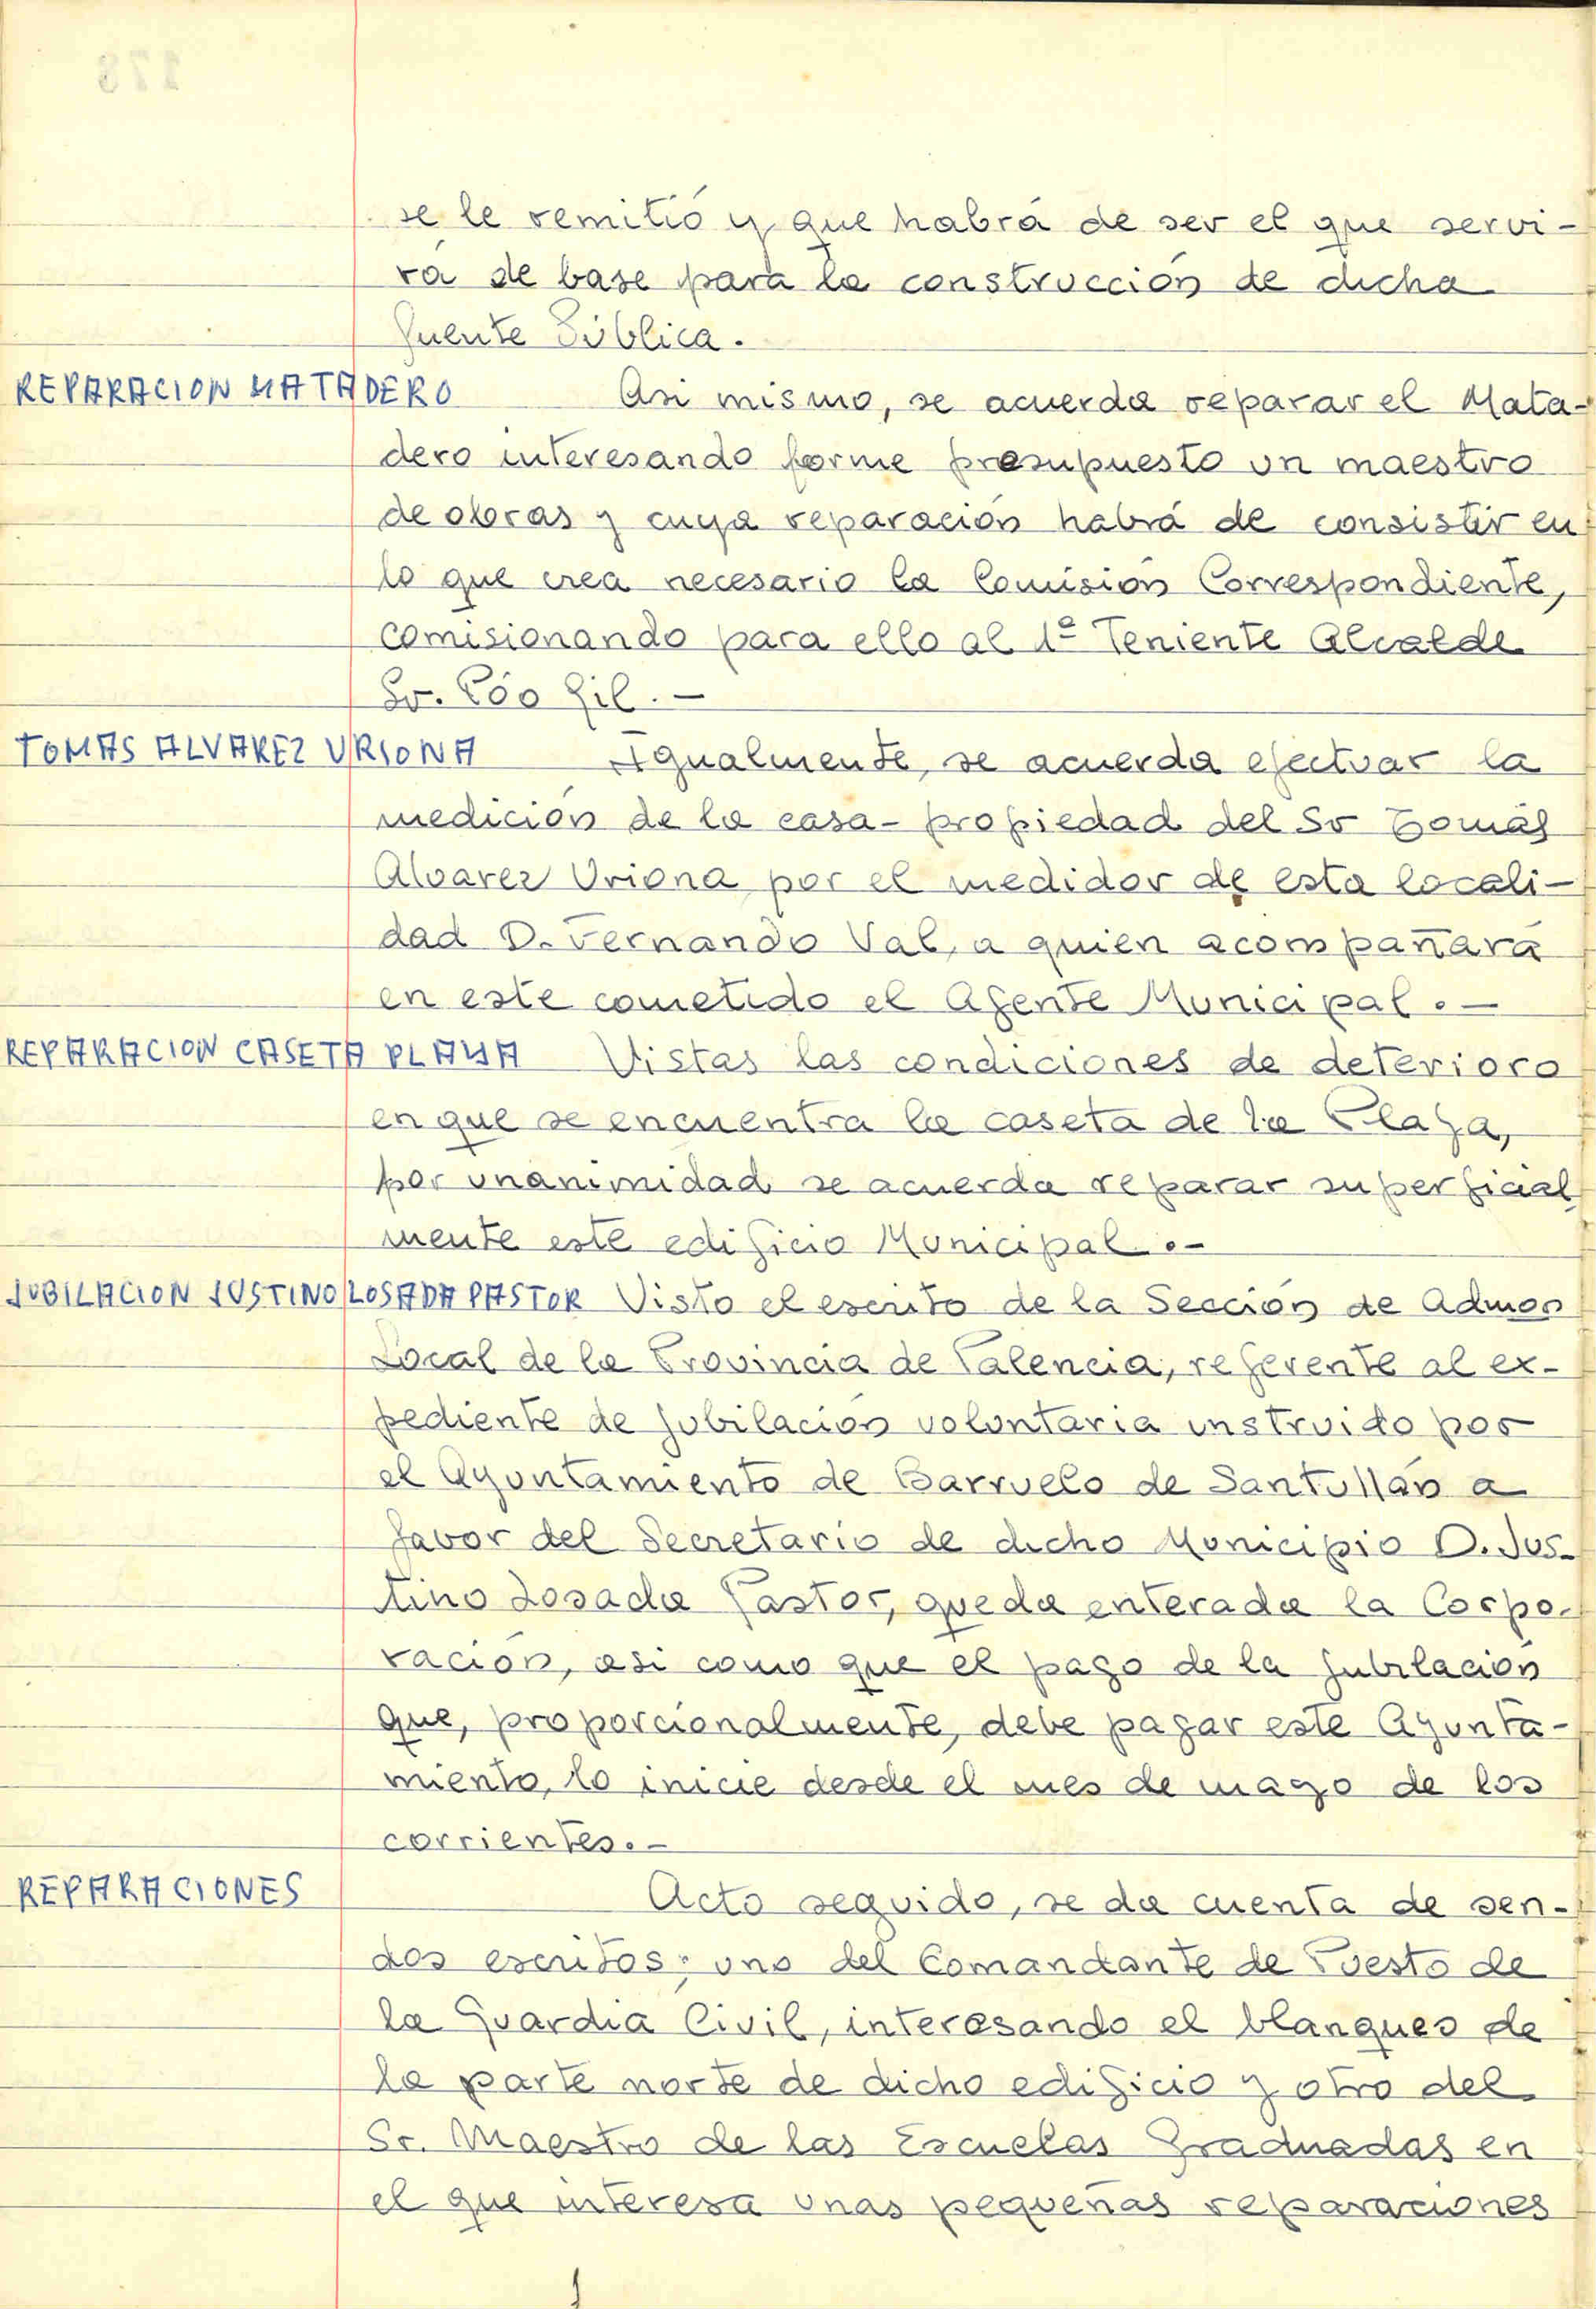 se le remitió y que habrá de ser el que servi-
rá de base para la construcción de dicha
fuente Pública.
REPARACION MATADERO Asi mismo, se acuerda reparar el Mata-
dero interesando forme presupuesto un maestro
de obras y cuya reparación habrá de consistir en
lo que crea necesario la Comisión Correspondiente,
comisionando para ello al 1º Teniente Alcalde
Sr. Póo Gil.-
TOMAS ALVAREZ URIONA Igualmente, se acuerda efectuar la
medición de la casa-propiedad del Sr Tomás
Alvarez Uriona por el medidor de esta locali-
dad D. Fernando Val, a quien acompañará
en este cometido el Agente Municipal.-
REPARACION CASETA PLAYA Vistas las condiciones de deterioro
en que se encuentra la caseta de la Playa,
por unanimidad se acuerda reparar superficial
mente este edificio Municipal.-
JUBILACION JUSTINO LOSADA PASTOR Visto el escrito de la Sección de Admon
Local de la Provincia de Palencia, referente al ex-
pediente de jubilación voluntaria instruido por
el Ayuntamiento de Barruelo de Santullán a
favor del Secretario de dicho Municipio D. Jus-
tino Losada Pastor, queda enterada la Corpo-
ración, asi como que el pago de la jubilación
que, proporcionalmente, debe pagar este Ayunta-
miento, lo inicie desde el mes de mayo de los
corrientes.-
REPARACIONES Acto seguido, se da cuenta de sen-
dos escritos; uno del Comandante de Puesto de
la Guardia Civil, interesando el blanqueo de
la parte norte de dicho edificio y otro del
Sr. Maestro de las Escuelas Graduadas en
el que interesa unas pequeñas reparaciones